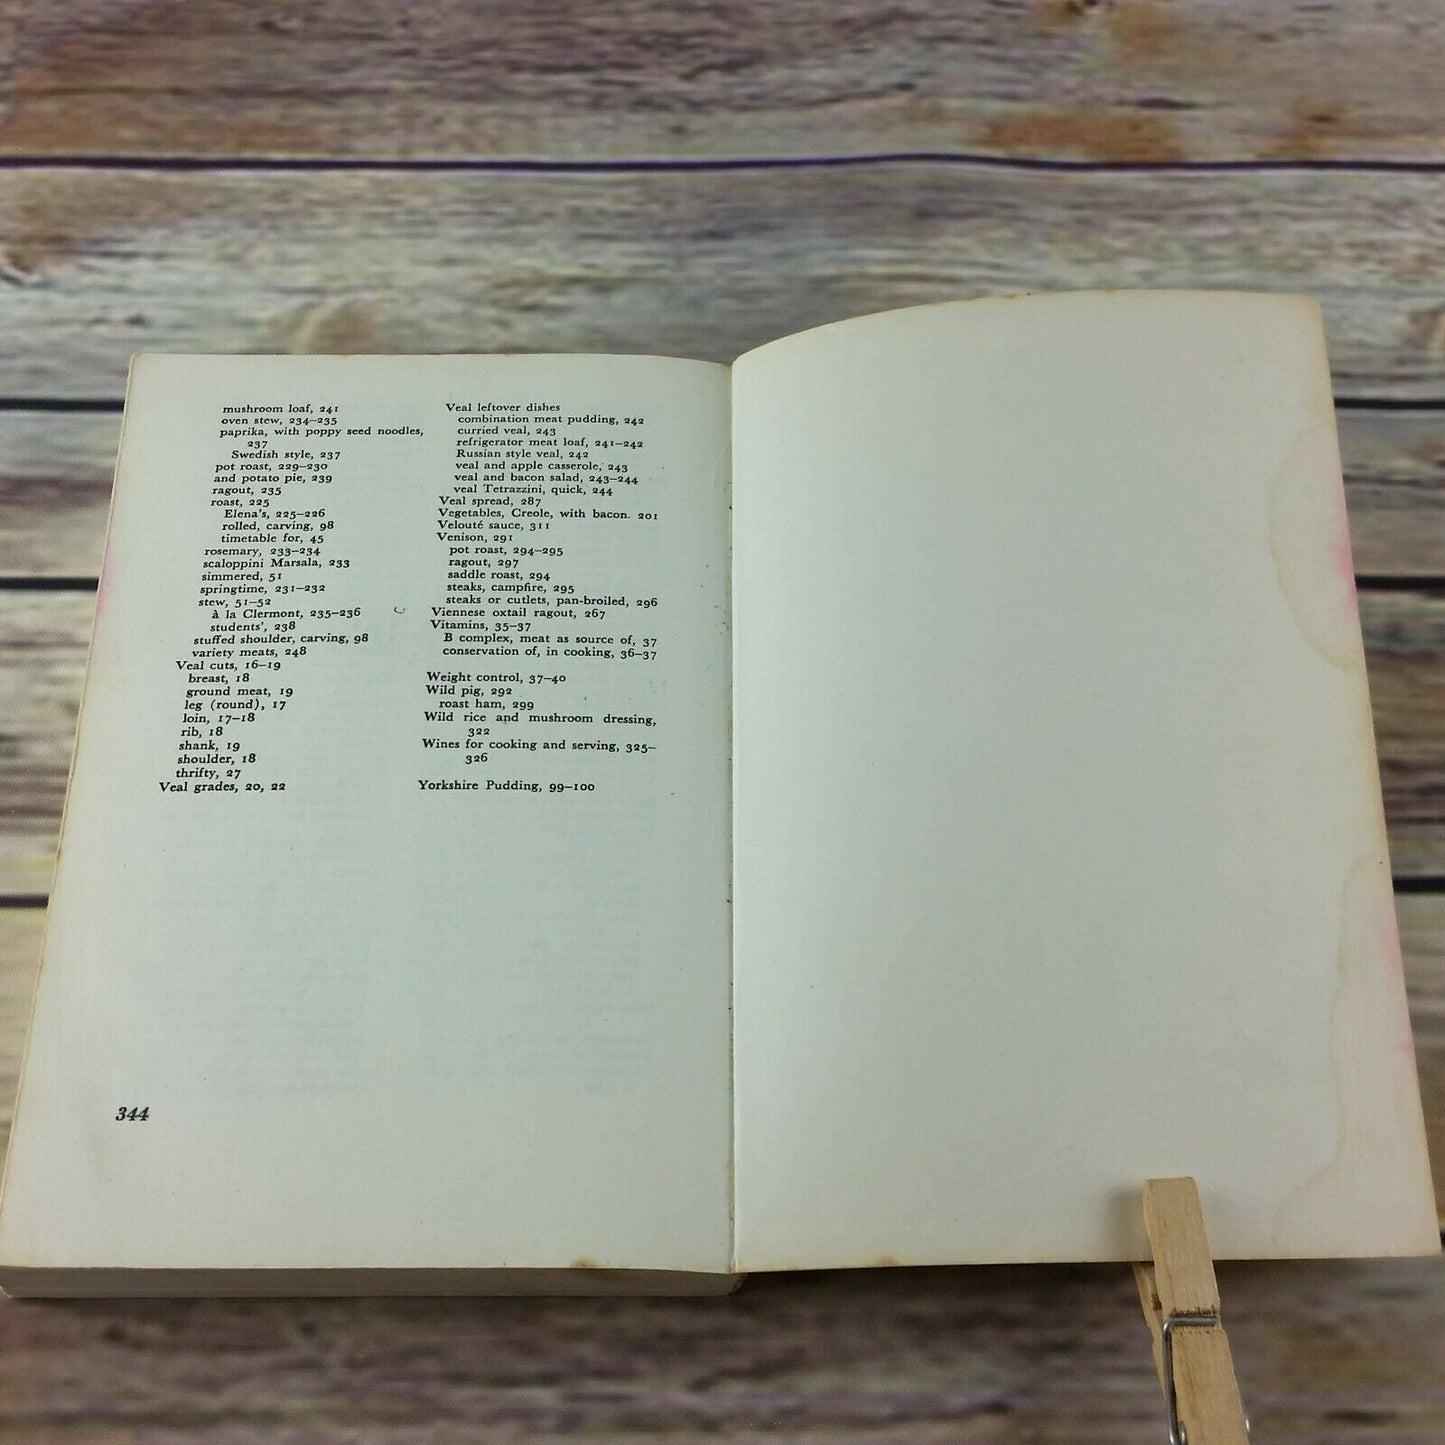 mushroom loaf, 241
oven stew, 234–235
paprika, with poppy seed noodles,
237
Swedish style, 237
pot roast, 229–230
and potato pie, 239
ragout, 235
roast, 225
Elena's, 225–226
rolled, carving, 98
timetable for, 45
rosemary, 233–234
scaloppini Marsala, 233
simmered, 51
springtime, 231–232
stew, 51–52
à la Clermont, 235–236
students', 238
stuffed shoulder, carving, 98
variety meats, 248
Veal cuts, 16–19
breast, 18
ground meat, 19
leg (round), 17
loin, 17–18
rib, 18
shank, 19
shoulder, 18
thrifty, 27
Veal grades, 20, 22
Veal leftover dishes
combination meat pudding, 242
curried veal, 243
refrigerator meat loaf, 241–242
Russian style veal, 242
veal and apple casserole, 243
veal and bacon salad, 243–244
veal Tetrazzini, quick, 244
Veal spread, 287
Vegetables, Creole, with bacon. 201
Velouté sauce, 311
Venison, 291
pot roast, 294–295
ragout, 297
saddle roast, 294
steaks, campfire, 295
steaks or cutlets, pan-broiled, 296
Viennese oxtail ragout, 267
Vitamins, 35–37
B complex, meat as source of, 37
conservation of, in cooking, 36–37
Weight control, 37–40
Wild pig, 292
roast ham, 299
Wild rice and mushroom dressing,
322
Wines for cooking and serving, 325–
326
Yorkshire Pudding, 99–100
344